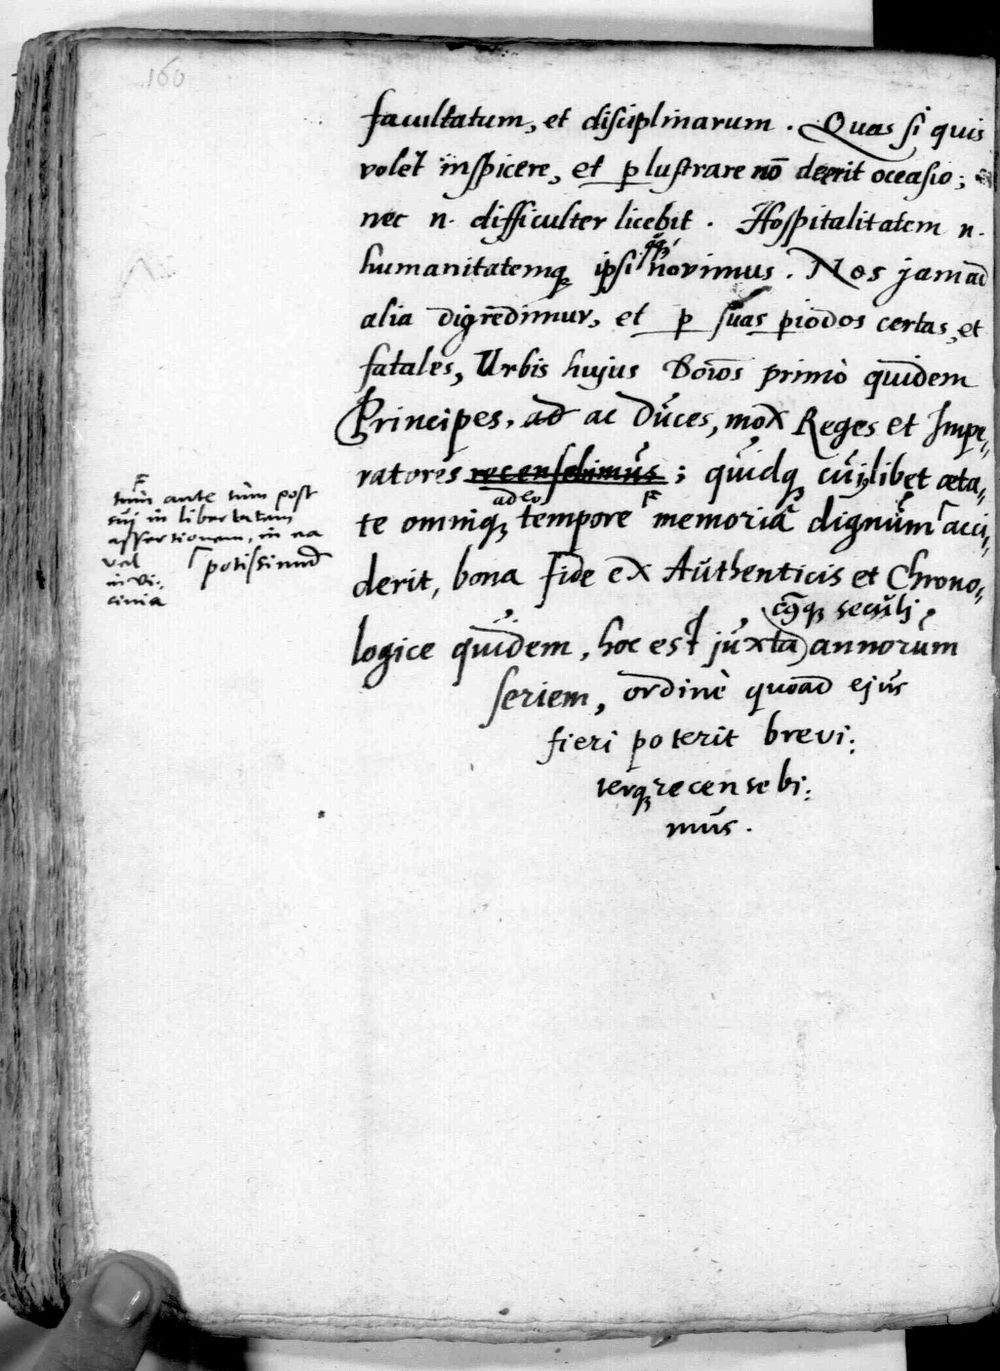 160
facultatum, et disciplinarum. Quas si quis
volet inspicere, et plustrare nō deerit occasio;
nec n. difficulter licebit. Hospitalitatem n.
humanitatemq ipsi novimus. Nos jam ad
alia digredimur, et p suas piodos certas, et
fatales, Urbis hujus Boios primò quidem
Principes, ad ac Duces, mox Reges et Impe,
ratores recensebimus; quidq cujlibet æta,
adeo
te omniq tempore memoria dignum acci,
derit, bona fide ex Authenticis et Chrono,
cuiq seculi
logice quidem, hoc est juxta annorum
seriem, ordine quoad ejus
fieri poterit brevi:
terq recensebi:
mus.
tùm ante tùm post
sui in libertatem
assertionem, in ea
vel potissimùm
in vi:
cinia